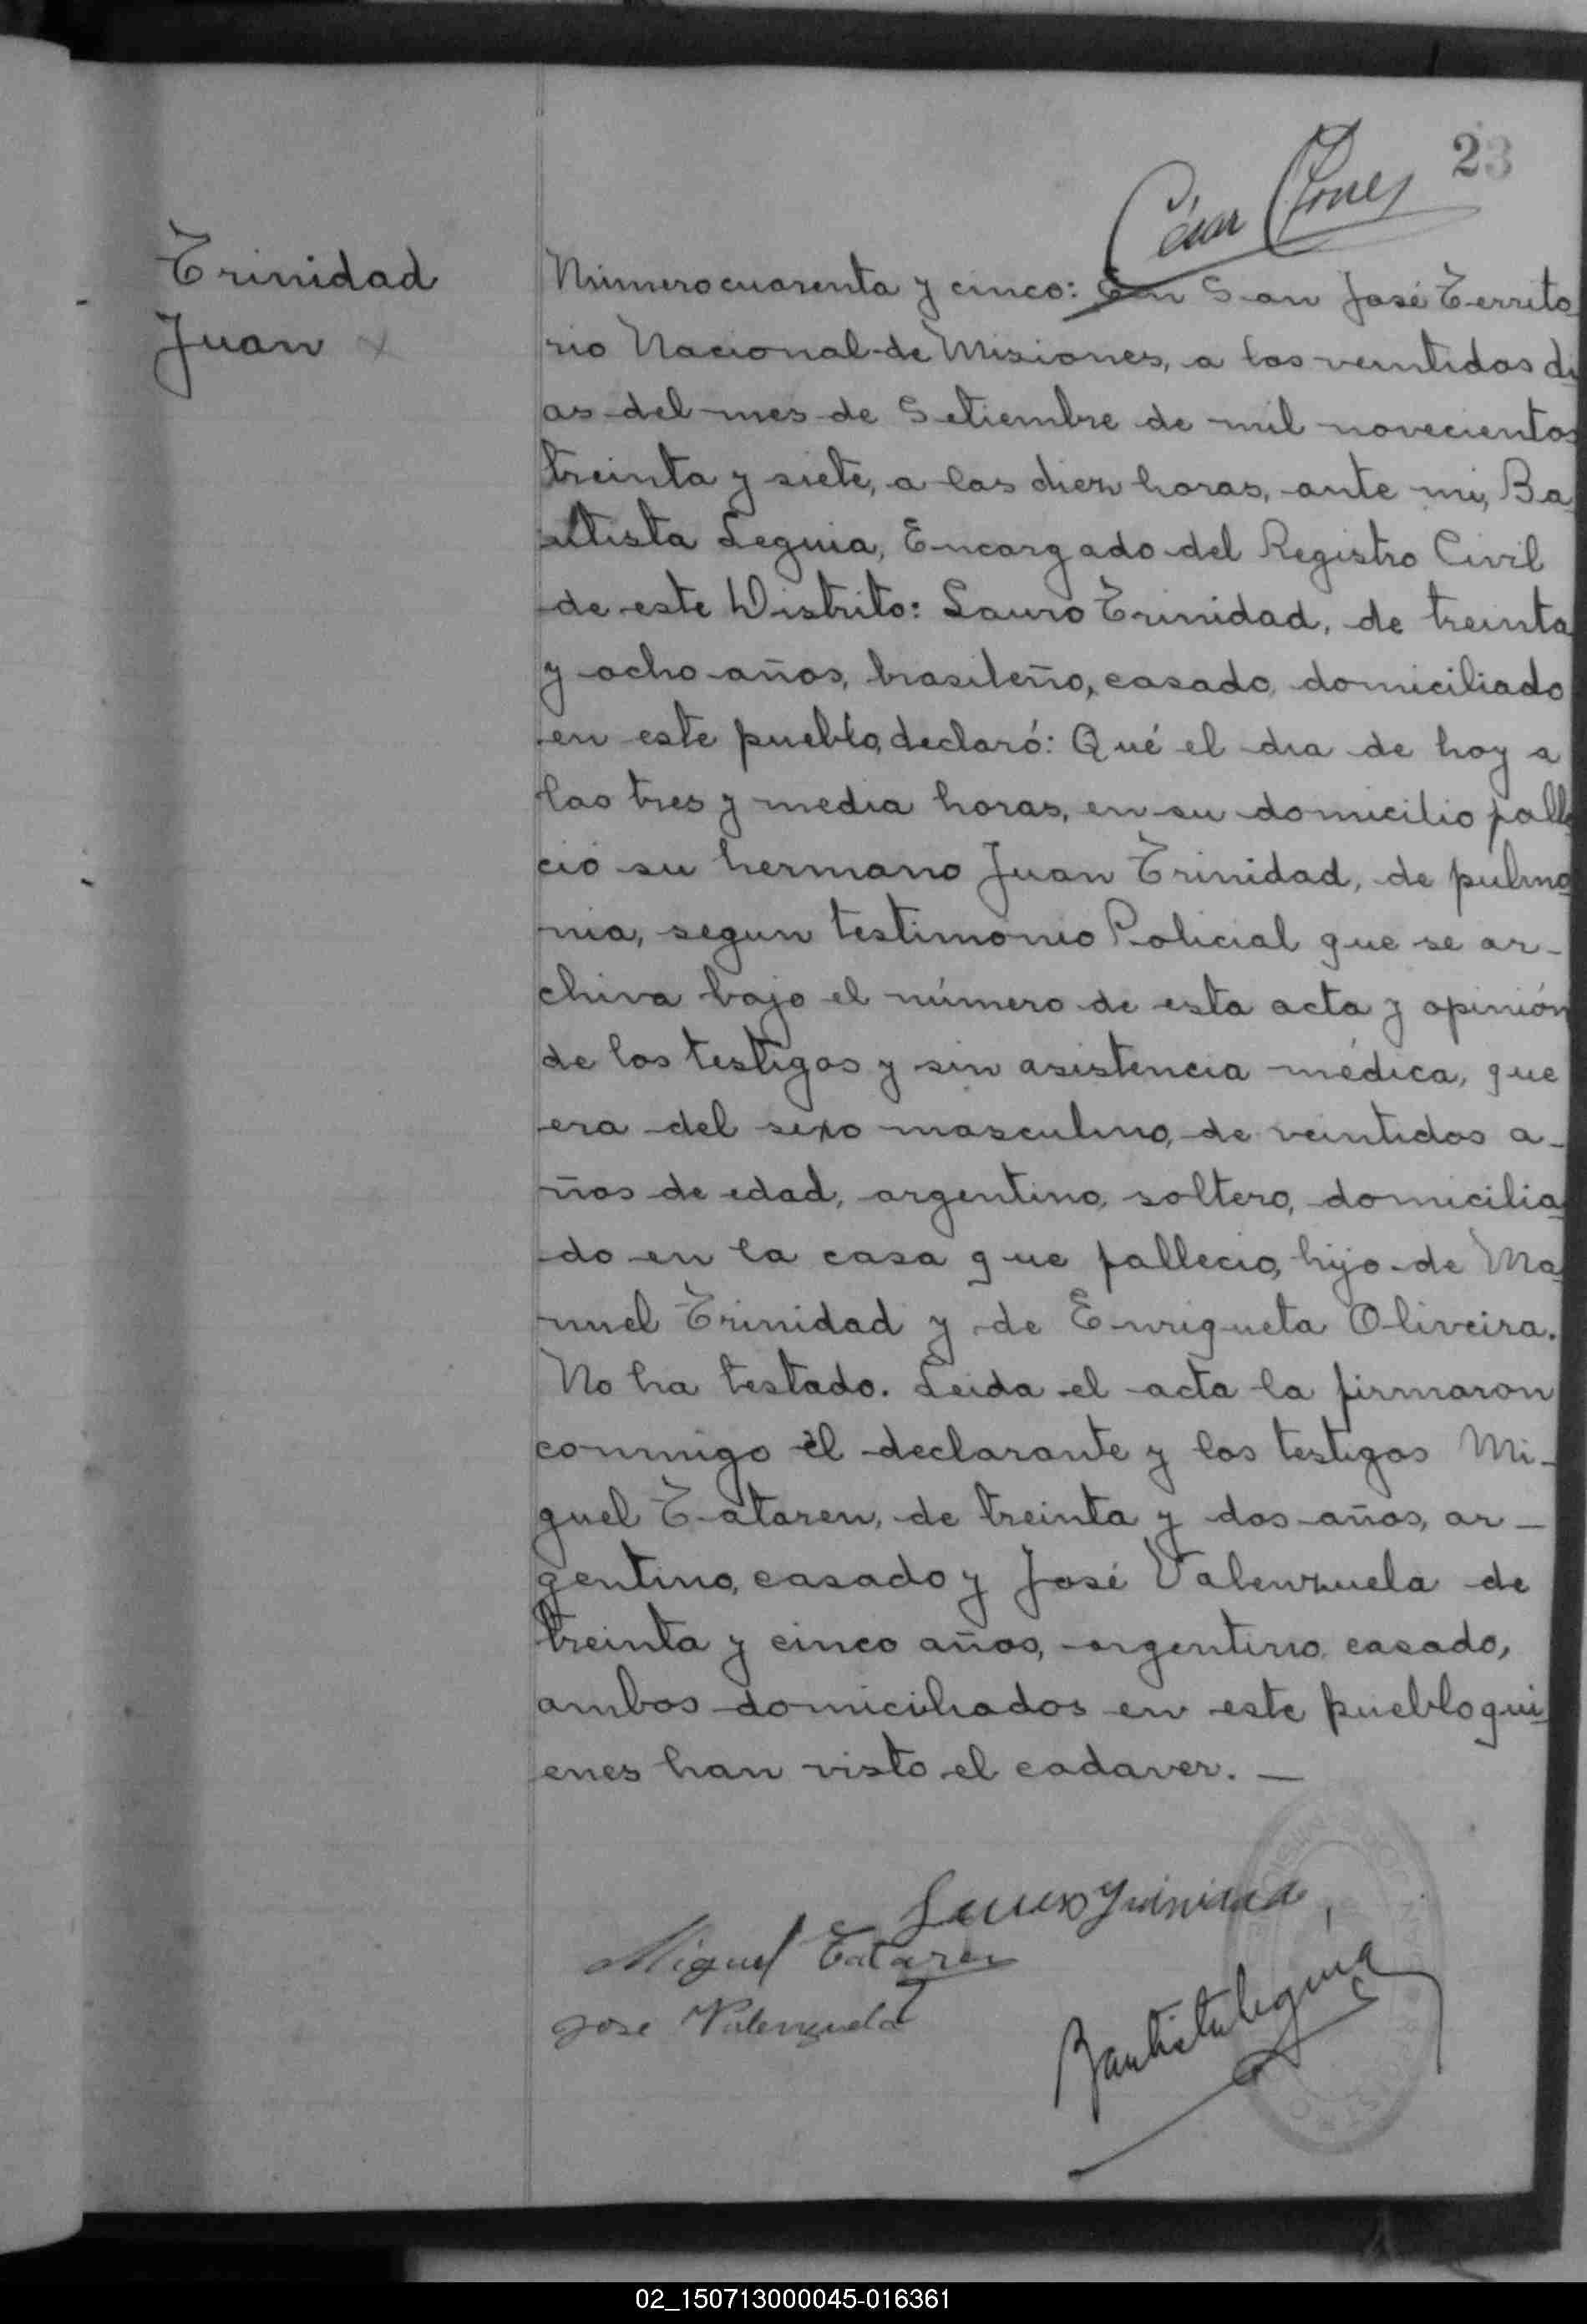 23
César
Trinidad
Juan x
Número cuarenta y cinco: En San José Territo
rio Nacional de Misiones, a los veintidos di
as del mes de Setiembre de mil novecientos
treinta y siete, a las diez horas, ante mi, Ba
utista Leguia, Encargado del Registro Civil
de este Distrito: Lauro Trinidad, de treinta
y ocho años, brasileño, casado, domiciliado
en este pueblo, declaró: Qué el dia de hoy a
las tres y media horas, en su domicilio falle
ció su hermano Juan Trinidad, de pulmo
nia, segun testimonio Policial que se ar-
chiva bajo el número de esta acta y opinión
de los testigos y sin asistencia médica, que
era del sexo masculino, de veintidos a-
ños de edad, argentino, soltero, domicilia
do en la casa que fallecio, hijo de Ma
nuel Trinidad y de Enriqueta Oliveira.
No ha testado. Leida el acta la firmaron
conmigo él declarante y los testigos Mi-
guel Tataren, de treinta y dos años, ar-
gentino, casado y José Valenzuela de
treinta y cinco años, argentino, casado,
ambos domiciliados en este pueblo qui
enes han visto el cadaver. —
Lauro Trinidad
Miguel Tataren
Jose Valenzuela
Bautista Leguia
02_150713000045-016361